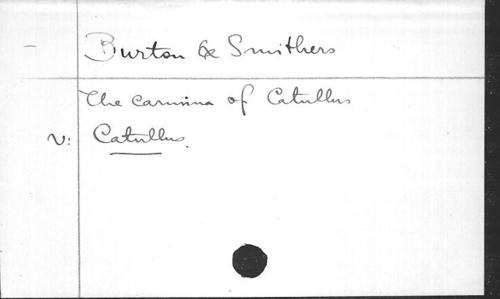 — Burton & Smithers
The carmina of Catullus
v: Catullus.